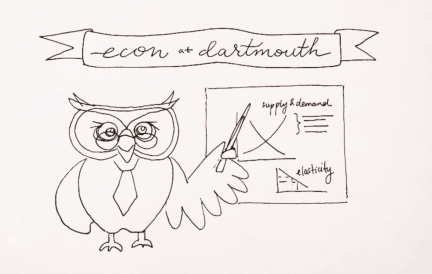 econ at dartmouth
supply & demand
elasticity